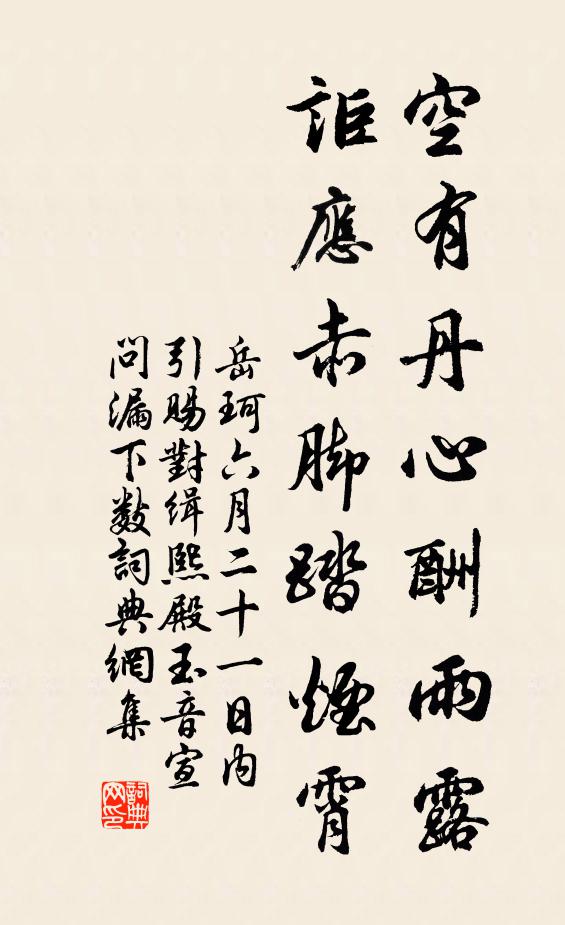 空有丹心酬雨露
詎應赤脚踏煙霄
岳珂六月二十一日内
引賜對緝熙殿玉音宣
問漏下數詞典網集
詞典
网印